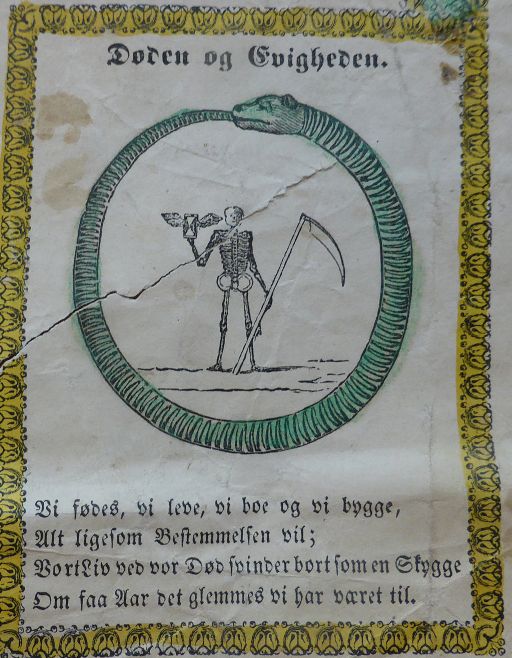 Døden og Evigheden.
Vi fødes, vi leve, vi boe og vi bygge,
Alt ligesom Bestemmelsen vil;
Vort Liv ved vor Død svinder bort som en Skygge
Om faa Aar det glemmes vi har været til.